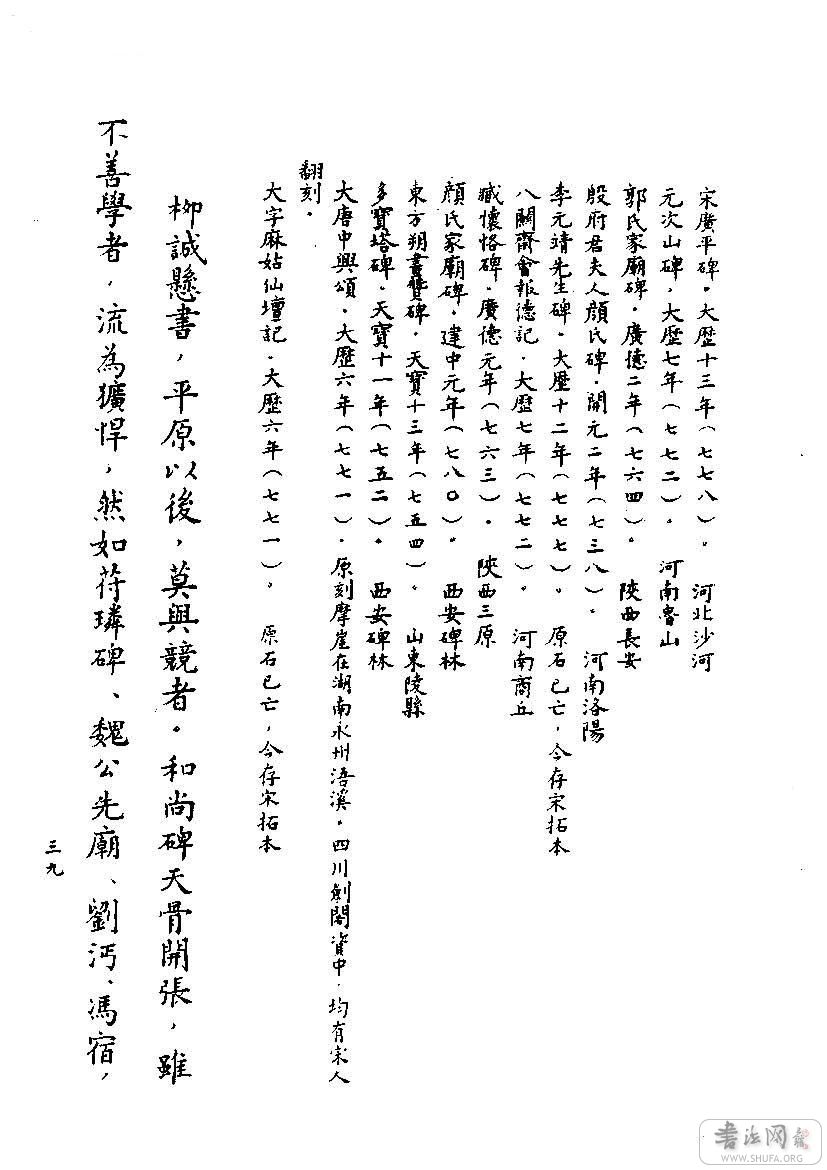 宋廣平碑。大歷十三年(七七八)。河北沙河
元次山碑,大歷七年(七七二)。河南魯山
郭氏家廟碑。廣德二年(七六四)。陝西長安
殷府君夫人顏氏碑。開元二年(七三八)。河南洛陽
李元靖先生碑。大歷十二年(七七七)。原石已亡,今存宋拓本
八關齋會報德記。大歷七年(七七二)。河南商丘
臧懷恪碑。廣德元年(七六三)。陝西三原
顏氏家廟碑。建中元年(七八〇)。西安碑林
東方朔畫贊碑。天寶十三年(七五四)。山東陵縣
多寶塔碑。天寶十一年(七五二)。西安碑林
大唐中興頌。大歷六年(七七一)。原刻摩崖在湖南永州浯溪。四川劍閣資中。均有宋人
翻刻。
大字麻姑仙壇記。大歷六年(七七一)。原石已亡,今存宋拓本
柳誠懸書,平原以後,莫與競者。和尚碑天骨開張,雖
不善學者,流為獷悍,然如苻璘碑、魏公先廟、劉沔、馮宿,
三九
書法网
WWW.SHUFA.ORG